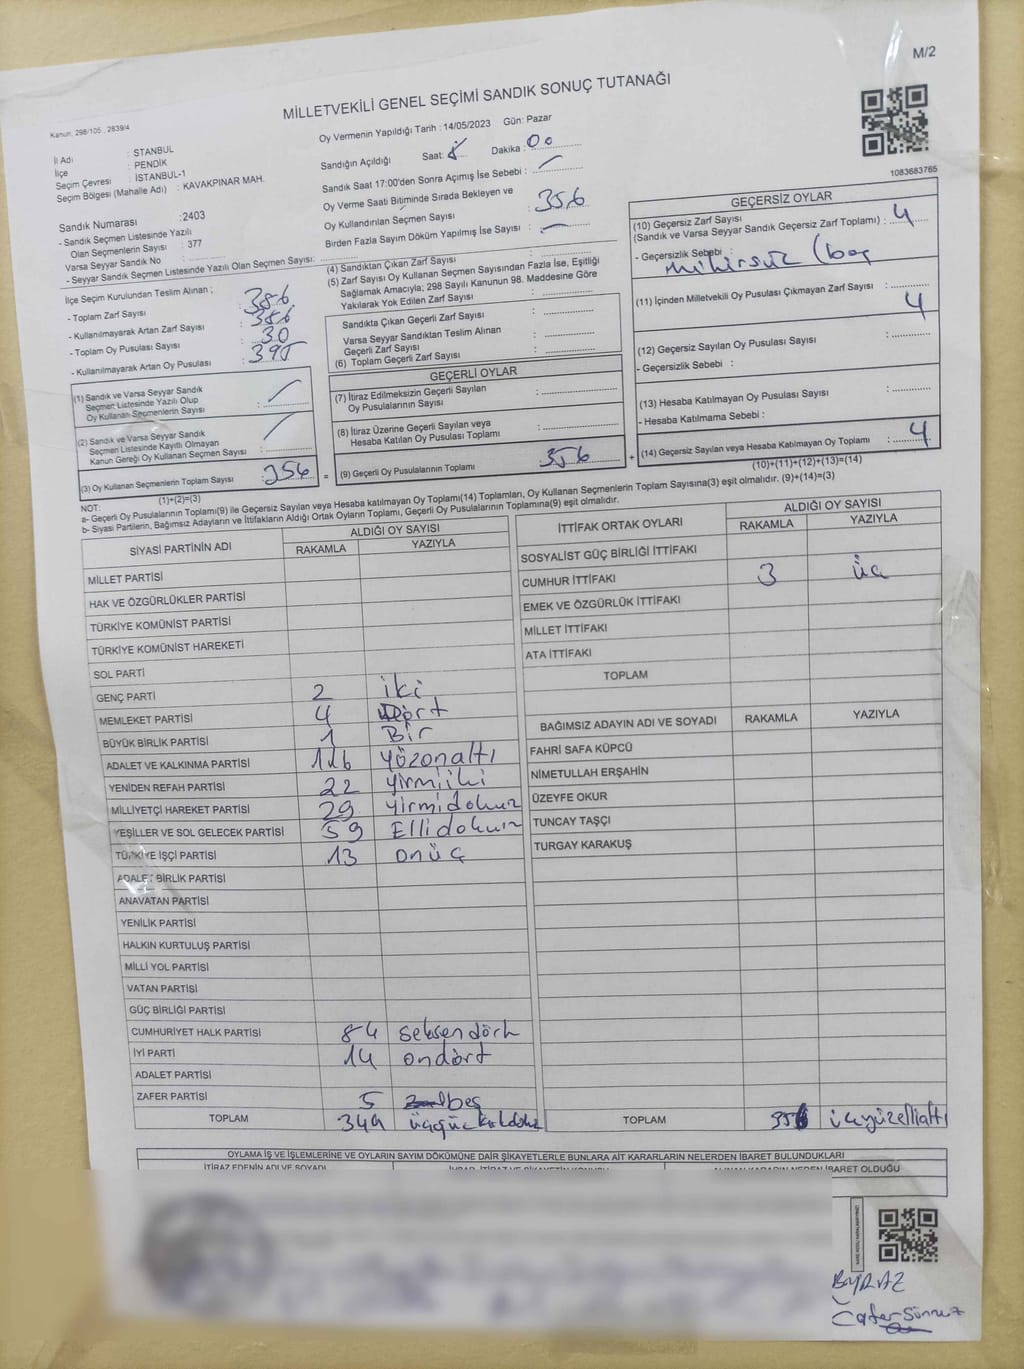 M/2
MİLLETVEKİLİ GENEL SEÇİMİ SANDIK SONUÇ TUTANAĞI
Kanun: 298/105 , 2839/4
Oy Vermenin Yapıldığı Tarih : 14/05/2023 Gün: Pazar
İl Adı : STANBUL
İlçe : PENDİK
Seçim Çevresi : İSTANBUL-1
Seçim Bölgesi (Mahalle Adı) : KAVAKPINAR MAH.
Sandığın Açıldığı Saat: 8 Dakika : 00
Sandık Saat 17:00'den Sonra Açımış İse Sebebi :
Oy Verme Saati Bitiminde Sırada Bekleyen ve
Oy Kullandırılan Seçmen Sayısı 356
Birden Fazla Sayım Döküm Yapılmış İse Sayısı :
1083683765
Sandık Numarası :2403
- Sandık Seçmen Listesinde Yazılı
Olan Seçmenlerin Sayısı : 377
Varsa Seyyar Sandık No :
- Seyyar Sandık Seçmen Listesinde Yazılı Olan Seçmen Sayısı:
İlçe Seçim Kurulundan Teslim Alınan :
- Toplam Zarf Sayısı : 386
- Kullanılmayarak Artan Zarf Sayısı : 386
- Toplam Oy Pusulası Sayısı : 30
- Kullanılmayarak Artan Oy Pusulası : 395
(1) Sandık ve Varsa Seyyar Sandık
Seçmen Listesinde Yazılı Olup
Oy Kullanan Seçmenlerin Sayısı :
(2) Sandık ve Varsa Seyyar Sandık
Seçmen Listesinde Kayıtlı Olmayan
Kanun Gereği Oy Kullanan Seçmen Sayısı :
(3) Oy Kullanan Seçmenlerin Toplam Sayısı : 356
(1)+(2)=(3)
(4) Sandıktan Çıkan Zarf Sayısı :
(5) Zarf Sayısı Oy Kullanan Seçmen Sayısından Fazla İse, Eşitliği
Sağlamak Amacıyla; 298 Sayılı Kanunun 98. Maddesine Göre
Yakılarak Yok Edilen Zarf Sayısı :
Sandıkta Çıkan Geçerli Zarf Sayısı :
Varsa Seyyar Sandıktan Teslim Alınan
Geçerli Zarf Sayısı :
(6) Toplam Geçerli Zarf Sayısı :
GEÇERLİ OYLAR
(7) İtiraz Edilmeksizin Geçerli Sayılan
Oy Pusulalarının Sayısı :
(8) İtiraz Üzerine Geçerli Sayılan veya
Hesaba Katılan Oy Pusulası Toplamı :
= (9) Geçerli Oy Pusulalarının Toplamı : 356 +
GEÇERSİZ OYLAR
(10) Geçersiz Zarf Sayısı
(Sandık ve Varsa Seyyar Sandık Geçersiz Zarf Toplamı) : 4
- Geçersizlik Sebebi : mühürsüz (boş
(11) İçinden Milletvekili Oy Pusulası Çıkmayan Zarf Sayısı : 4
(12) Geçersiz Sayılan Oy Pusulası Sayısı :
- Geçersizlik Sebebi :
(13) Hesaba Katılmayan Oy Pusulası Sayısı :
- Hesaba Katılmama Sebebi :
(14) Geçersiz Sayılan veya Hesaba Katılmayan Oy Toplamı : 4
(10)+(11)+(12)+(13)=(14)
NOT:
a- Geçerli Oy Pusulalarının Toplamı(9) ile Geçersiz Sayılan veya Hesaba katılmayan Oy Toplamı(14) Toplamları, Oy Kullanan Seçmenlerin Toplam Sayısına(3) eşit olmalıdır. (9)+(14)=(3)
b- Siyasi Partilerin, Bağımsız Adayların ve İttifakların Aldığı Ortak Oyların Toplamı, Geçerli Oy Pusulalarının Toplamına(9) eşit olmalıdır.
SİYASİ PARTİNİN ADI ALDIĞI OY SAYISI
RAKAMLA YAZIYLA
MİLLET PARTİSİ
HAK VE ÖZGÜRLÜKLER PARTİSİ
TÜRKİYE KOMÜNİST PARTİSİ
TÜRKİYE KOMÜNİST HAREKETİ
SOL PARTİ
GENÇ PARTİ 2 iki
MEMLEKET PARTİSİ 4 Dört
BÜYÜK BİRLİK PARTİSİ 1 Bir
ADALET VE KALKINMA PARTİSİ 116 yözonaltı
YENİDEN REFAH PARTİSİ 22 yirmiiki
MİLLİYETÇİ HAREKET PARTİSİ 29 yirmidokuz
YEŞİLLER VE SOL GELECEK PARTİSİ 59 Ellidokuz
TÜRKİYE İŞÇİ PARTİSİ 13 onüç
ADALET BİRLİK PARTİSİ
ANAVATAN PARTİSİ
YENİLİK PARTİSİ
HALKIN KURTULUŞ PARTİSİ
MİLLİ YOL PARTİSİ
VATAN PARTİSİ
GÜÇ BİRLİĞİ PARTİSİ
CUMHURİYET HALK PARTİSİ 84 seksendört
İYİ PARTİ 14 ondört
ADALET PARTİSİ
ZAFER PARTİSİ 5 beş
TOPLAM 349
İTTİFAK ORTAK OYLARI ALDIĞI OY SAYISI
RAKAMLA YAZIYLA
SOSYALİST GÜÇ BİRLİĞİ İTTİFAKI
CUMHUR İTTİFAKI 3 üç
EMEK VE ÖZGÜRLÜK İTTİFAKI
MİLLET İTTİFAKI
ATA İTTİFAKI
TOPLAM
BAĞIMSIZ ADAYIN ADI VE SOYADI RAKAMLA YAZIYLA
FAHRİ SAFA KÜPCÜ
NİMETULLAH ERŞAHİN
ÜZEYFE OKUR
TUNCAY TAŞÇI
TURGAY KARAKUŞ
TOPLAM 356 üçyüzellialtı
OYLAMA İŞ VE İŞLEMLERİNE VE OYLARIN SAYIM DÖKÜMÜNE DAİR ŞİKAYETLERLE BUNLARA AİT KARARLARIN NELERDEN İBARET BULUNDUKLARI
İTİRAZ EDENİN ADI VE SOYADI